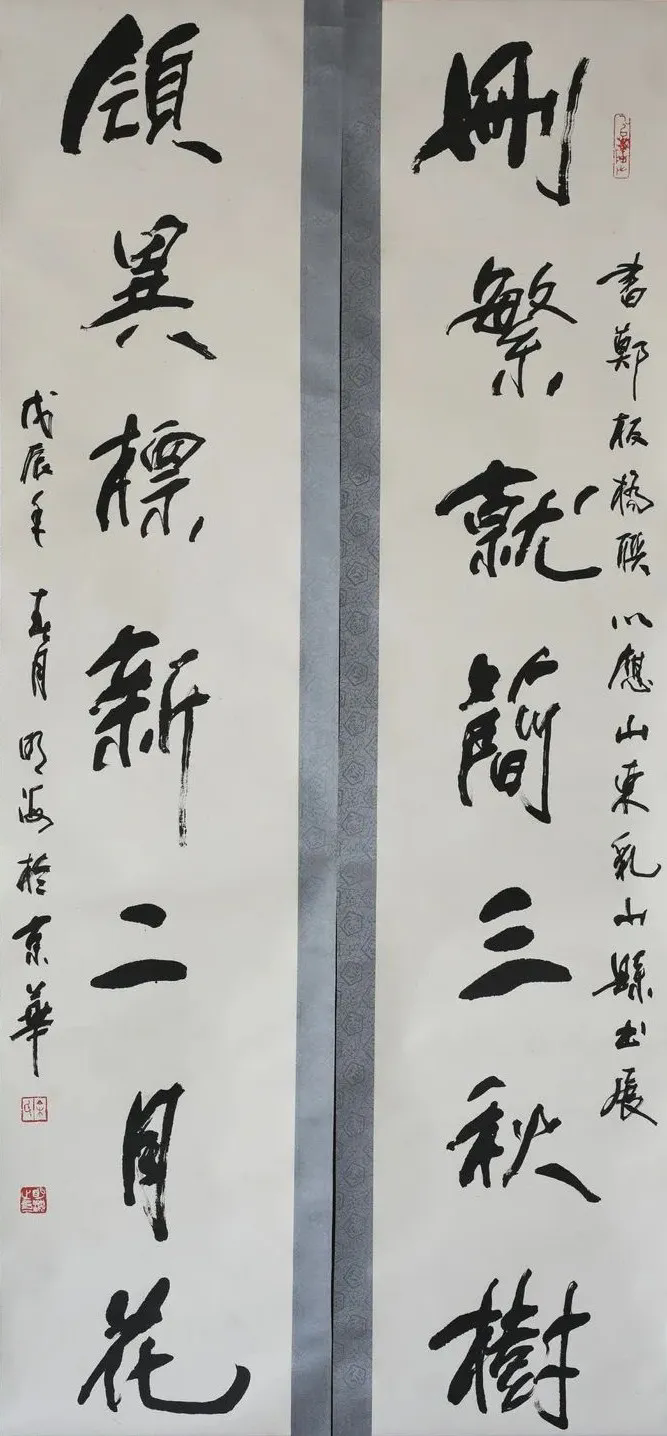 書鄭板橋聯以應山東乳山縣書展
刪繁就簡三秋樹
領異標新二月花
戊辰年春月明海於京華